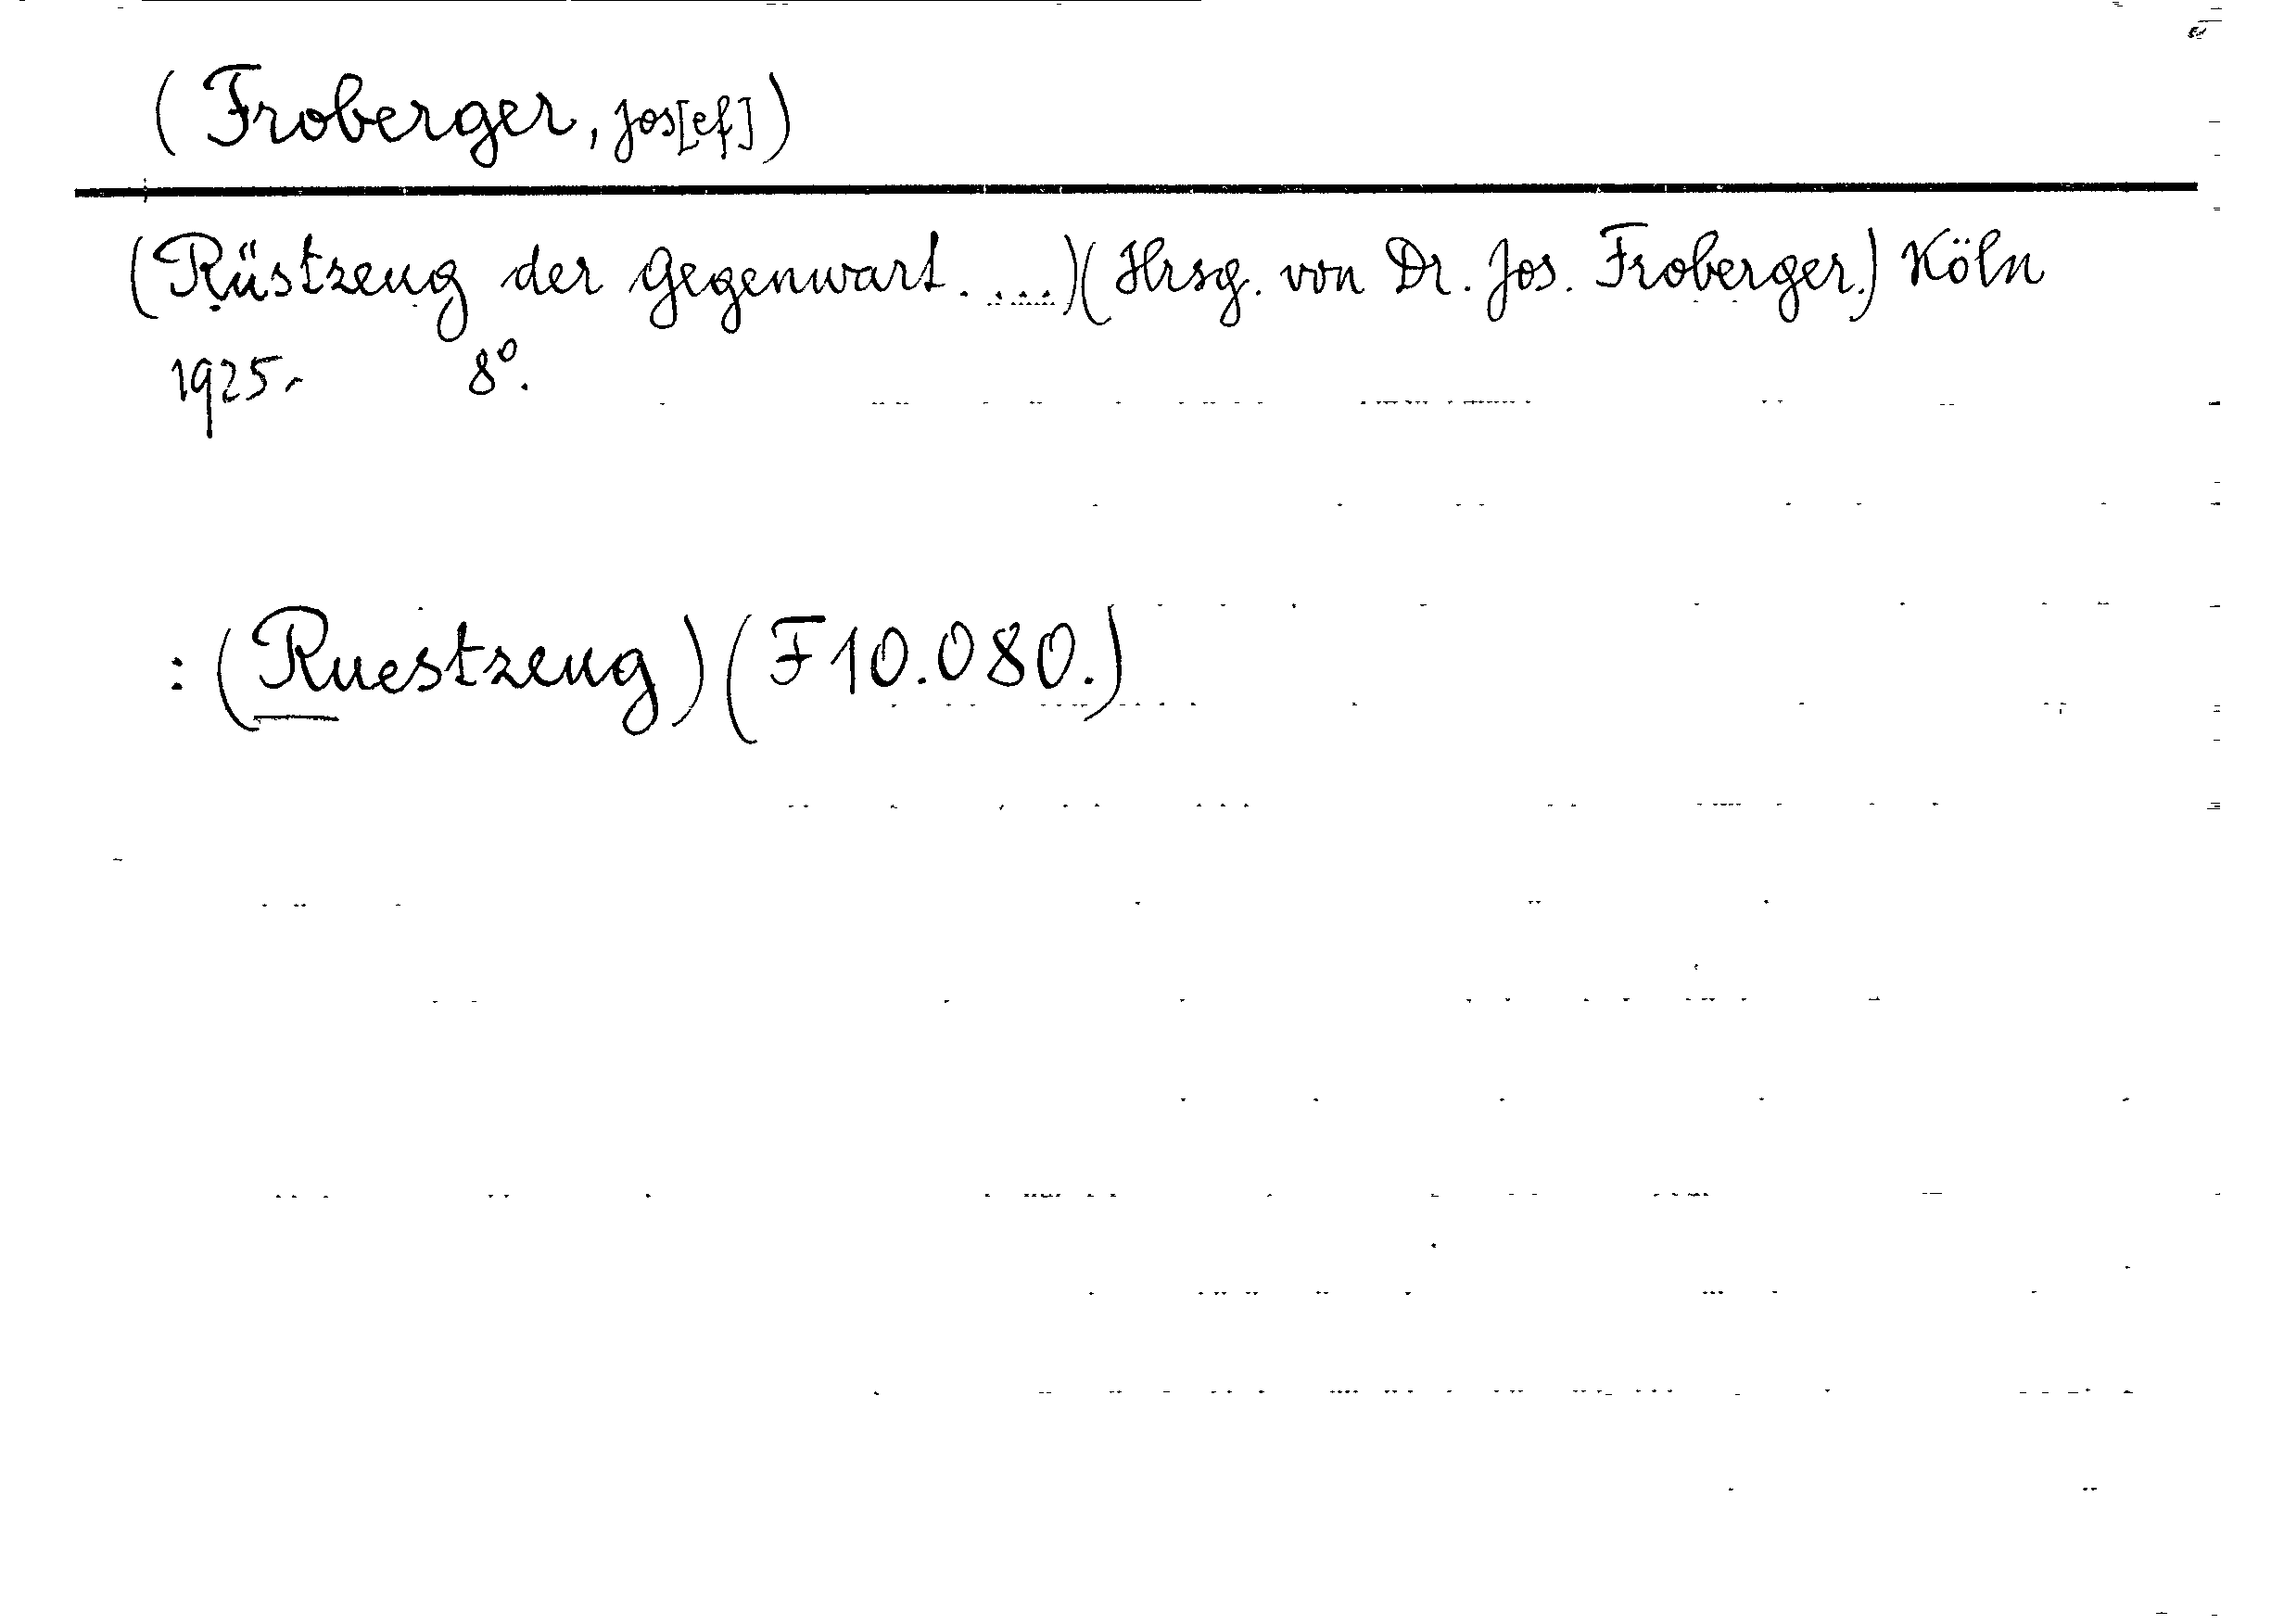 (Froberger, Jos[ef])
(Rüstzeug der Gegenwart. ...)(Hrsg. von Dr. Jos. Froberger.) Köln
1925.- 8⁰.
: (Ruestzeug) (F 10.080.)